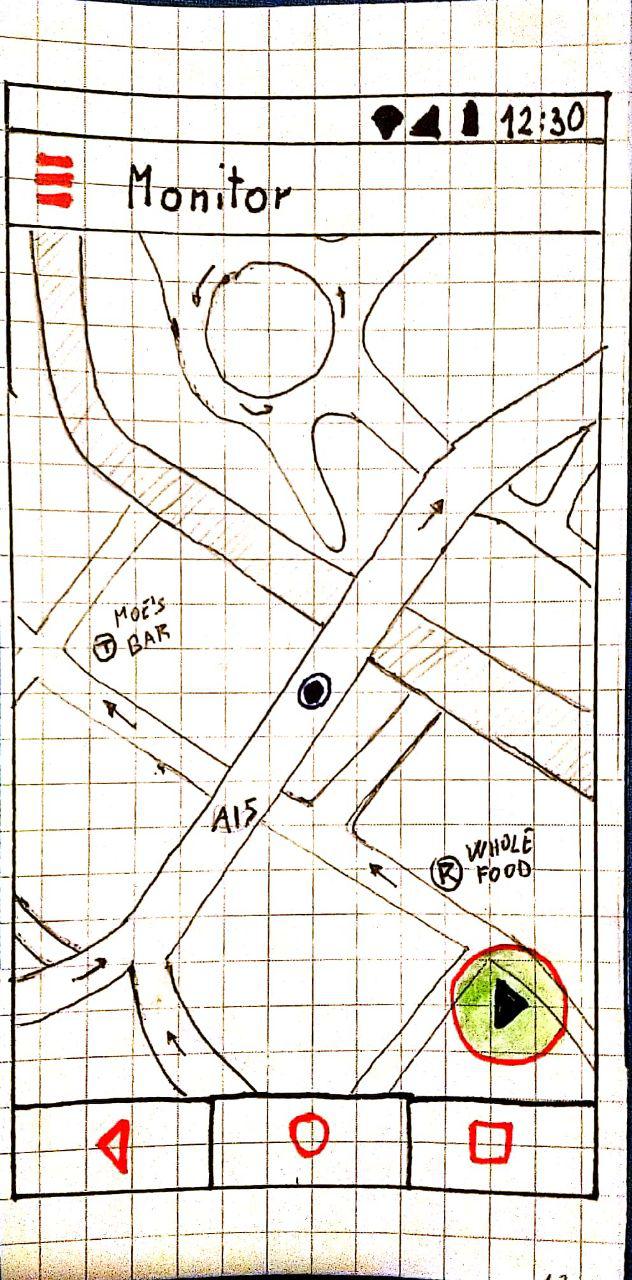 12:30
Monitor
MOE'S
Ⓣ BAR
A15
Ⓡ WHOLE
FOOD